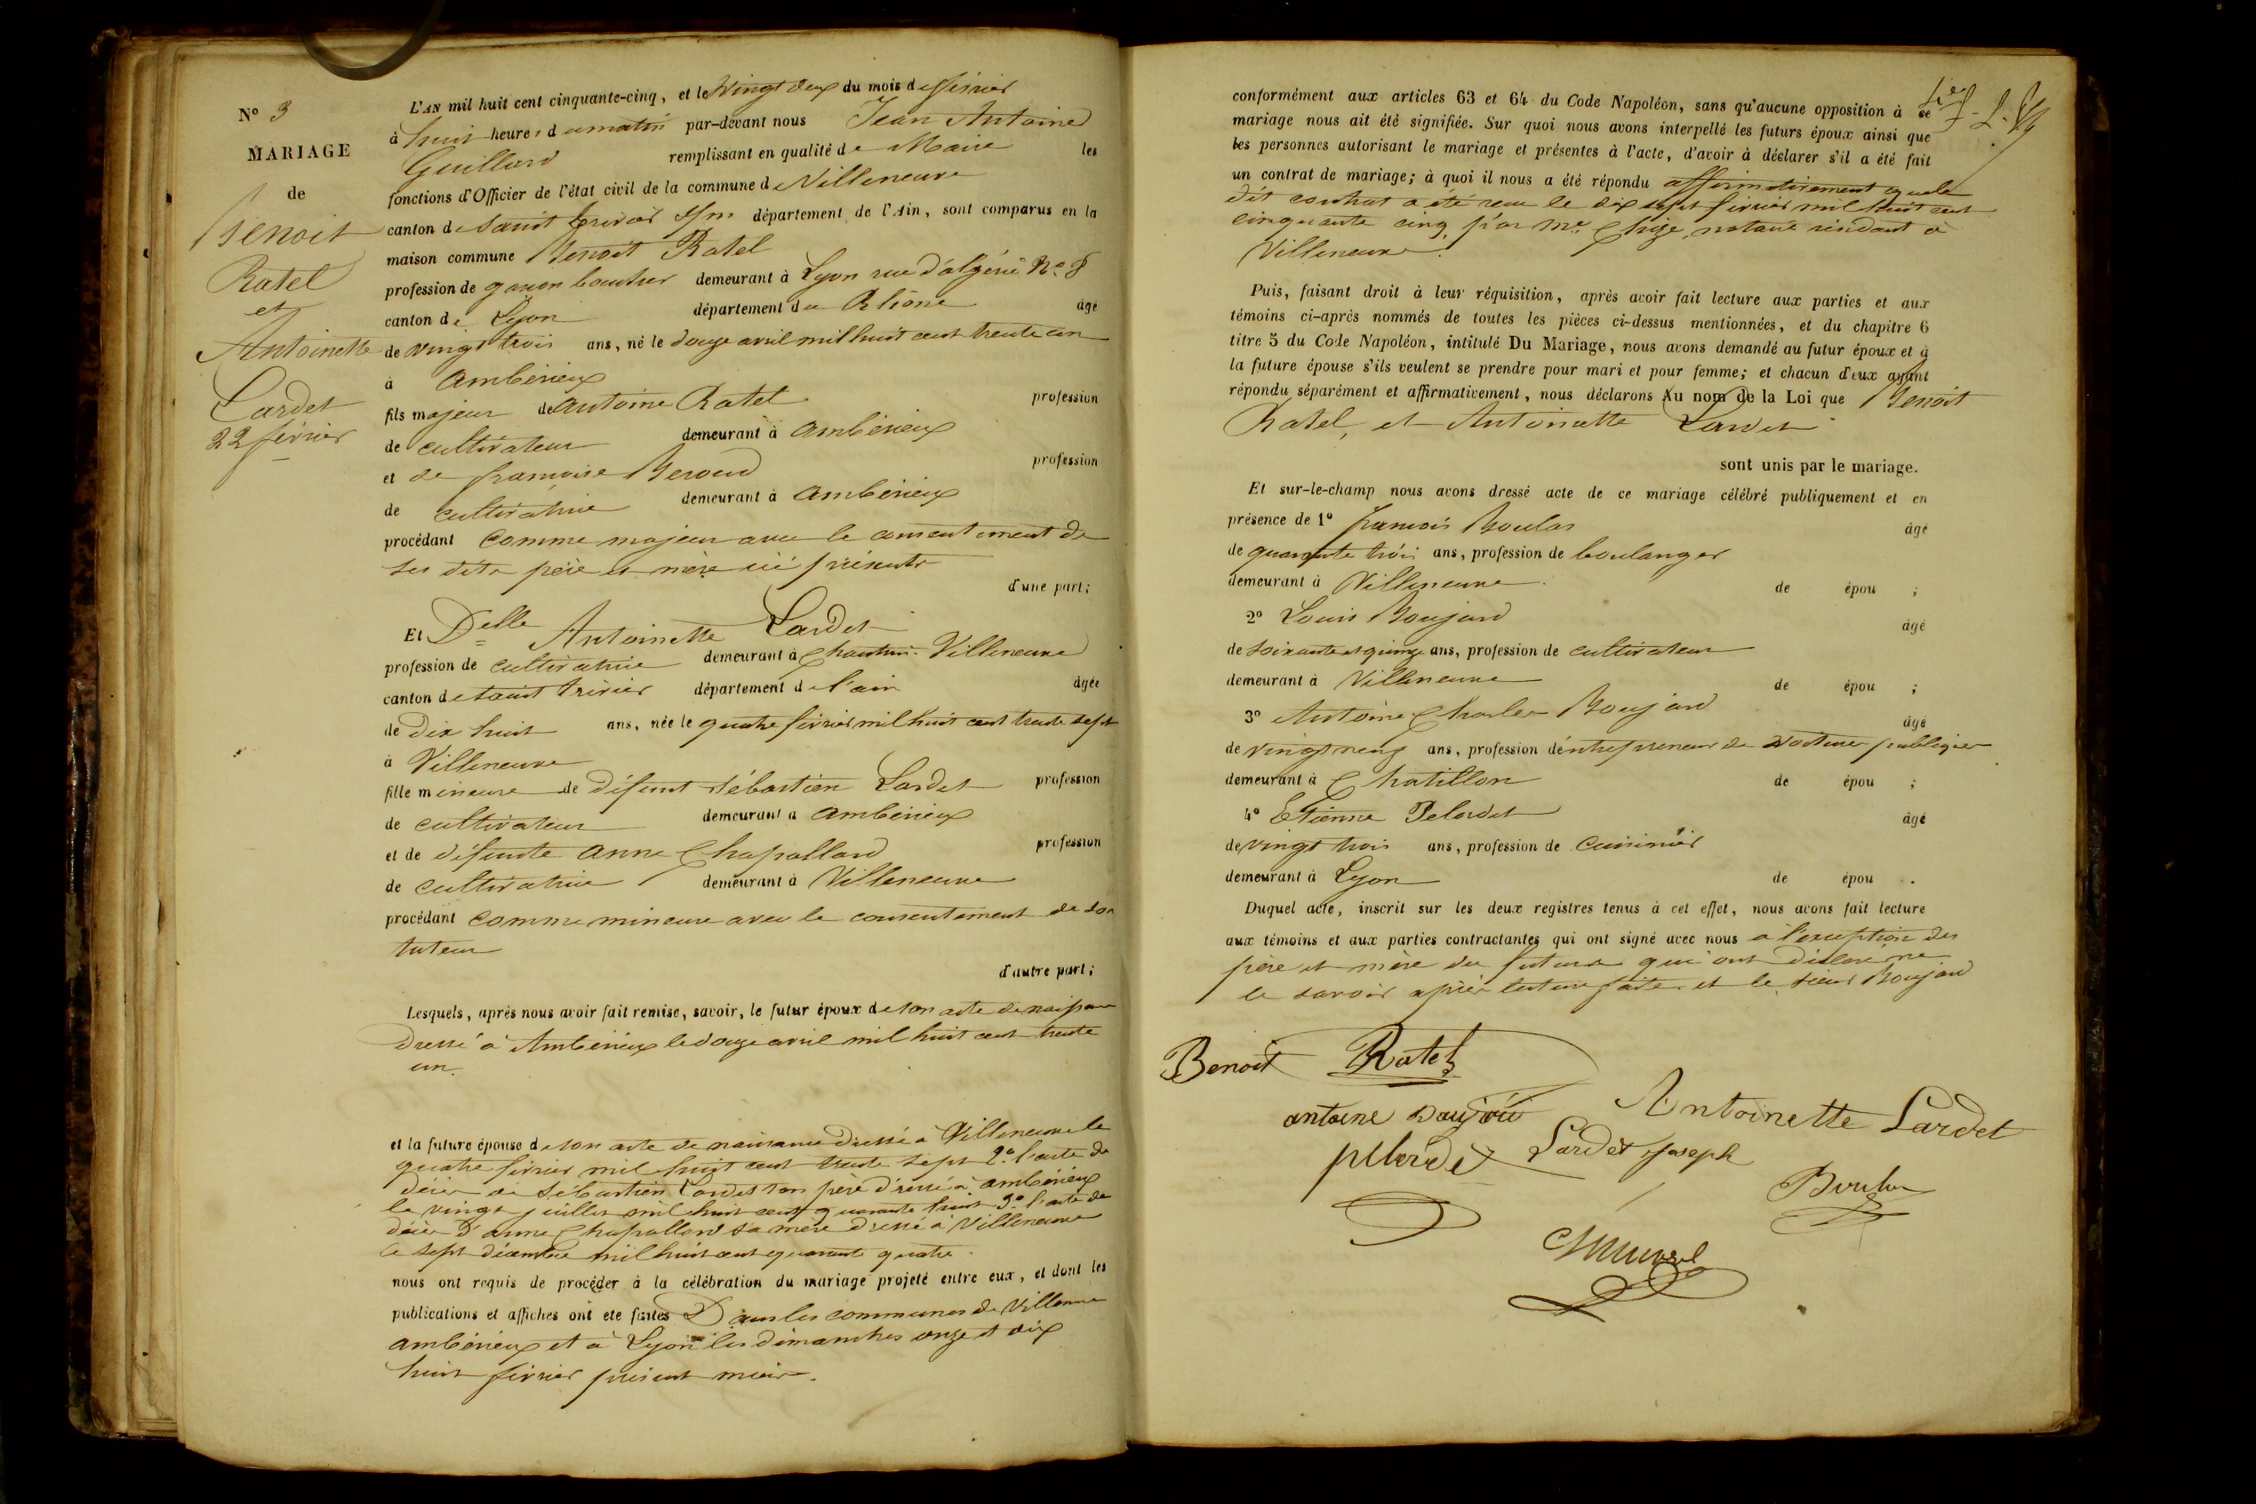 N° 3
MARIAGE
de
Benoit
Ratel
et
Antoinette
Lardet
22 février
L'AN mil huit cent cinquante-cinq, et le vingt deux du mois de février
à huit heures du matin par-devant nous Jean Antoine
Guillard remplissant en qualité de Maire les
fonctions d'Officier de l'état civil de la commune de Villeneuve
canton de Saint Trivier s/m département de l'Ain, sont comparus en la
maison commune Benoit Ratel
profession de garçon boucher demeurant à Lyon rue d'algérie N° 8
canton de Lyon département du Rhône âgé
de vingt trois ans, né le douze avril mil huit cent trente un
à Ambérieux
fils majeur de Antoine Ratel profession
de cultivateur demeurant à Ambérieux
et de françoise Beroud profession
de cultivatrice demeurant à Ambérieux
procédant comme majeur avec le consentement de
ses dits père et mère ici présents
d'une part;
Et Delle Antoinette Lardet
profession de cultivatrice demeurant à Villeneuve
canton de saint trivier département de l'ain âgée
de dix huit ans, née le quatre février mil huit cent trente sept
à Villeneuve
fille mineure de défunt Sébastien Lardet profession
de cultivateur demeurant à Ambérieux
et de défunte Anne Chapolard profession
de cultivatrice demeurant à Villeneuve
procédant comme mineure avec le consentement de son
tuteur
d'autre part;
Lesquels, après nous avoir fait remise, savoir, le futur époux de son acte de naissance
dressé à Ambérieux le douze avril mil huit cent trente
un.
et la future épouse de son acte de naissance dressé à Villeneuve le
quatre février mil huit cent trente sept 2° l'acte de
décès de Sébastien Lardet son père dressé à ambérieux
le vingt juillet mil huit cent quarante huit 3° l'acte de
décès d'anne Chapolard sa mère dressé à Villeneuve
le sept décembre mil huit cent quarante quatre.
nous ont requis de procéder à la célébration du mariage projeté entre eux, et dont les
publications et affiches ont été faites Dans les communes de Villeneuve
ambérieux et à Lyon les dimanches onze et dix
huit février présent mois.
conformément aux articles 63 et 64 du Code Napoléon, sans qu'aucune opposition à se
mariage nous ait été signifiée. Sur quoi nous avons interpellé les futurs époux ainsi que
les personnes autorisant le mariage et présentes à l'acte, d'avoir à déclarer s'il a été fait
un contrat de mariage; à quoi il nous a été répondu affirmativement que le
dit contrat a été reçu le dix sept février mil huit cent
cinquante cinq, par Me notaire résidant à
Villeneuve.
Puis, faisant droit à leur réquisition, après avoir fait lecture aux parties et aux
témoins ci-après nommés de toutes les pièces ci-dessus mentionnées, et du chapitre 6
titre 5 du Code Napoléon, intitulé Du Mariage, nous avons demandé au futur époux et à
la future épouse s'ils veulent se prendre pour mari et pour femme; et chacun d'eux ayant
répondu séparément et affirmativement, nous déclarons Au nom de la Loi que Benoit
Ratel, et Antoinette Lardet
sont unis par le mariage.
Et sur-le-champ nous avons dressé acte de ce mariage célébré publiquement et en
présence de 1° françois Boulas âgé
de quarante trois ans, profession de boulanger
demeurant à Villeneuve de épou ;
2° Louis Boujard âgé
de soixante et quinze ans, profession de cultivateur
demeurant à Villeneuve de épou ;
3° Antoine Charles Boujard âgé
de vingt neuf ans, profession d'entrepreneur de voiture publique
demeurant à Chatillon de épou ;
4° Etienne Pelardet âgé
de vingt trois ans, profession de cuisinier
demeurant à Lyon de épou .
Duquel acte, inscrit sur les deux registres tenus à cet effet, nous avons fait lecture
aux témoins et aux parties contractantes qui ont signé avec nous à l'exception des
père et mère du futur qui ont déclaré ne
le savoir après lecture faite et le sieur Boujard
Benoit Ratel
antoine Boujard
Antoinette Lardet
Lardet Joseph